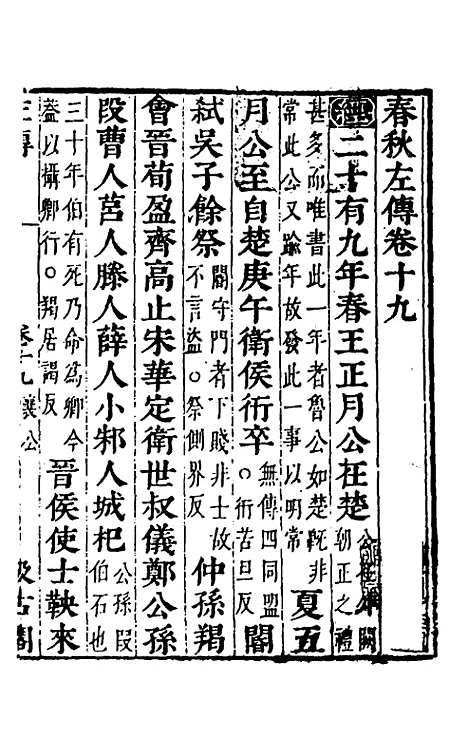 春秋左傳卷十九
經二十有九年春王正月公在楚公在外闕朝正之禮
甚多而唯書此一年者魯公如楚既非常此公又踰年故發此一事以明常夏五
月公至自楚庚午衛侯衎卒無傳四同盟○衎苦旦反閽
弒吳子餘祭閽守門者下賤非士故不言盜○祭側界反仲孫羯
會晉荀盈齊高止宋華定衛世叔儀鄭公孫
段曹人莒人滕人薛人小邾人城杞公孫段伯石也
三十年伯有死乃命為卿今蓋以攝卿行○羯居謁反晉侯使士鞅來
左傳 卷十九襄公 汲古閣